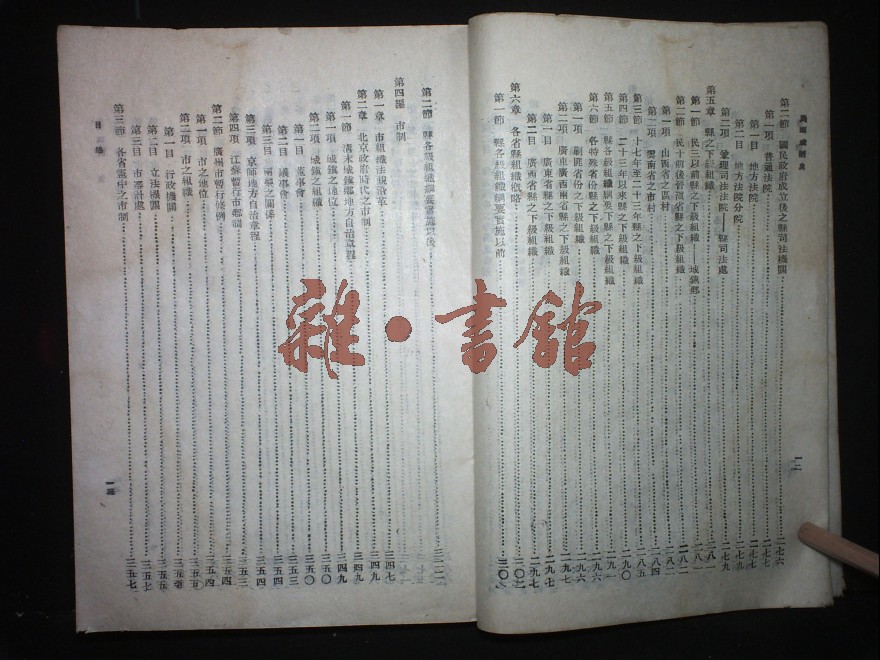 民國政制史
第二節 國民政府成立後之縣司法機關 二七六
第一項 普通法院 二七七
第一目 地方法院 二七七
第二目 地方法院分院 二七九
第二項 兼理司法法院——縣司法處 二七九
第五章 縣之下級組織 二八一
第一節 民三以前縣之下級組織——城鎮鄉 二八一
第二節 民十前後晉滇省縣之下級組織 二八二
第一項 山西省之區村 二八二
第二項 雲南省之市村 二八四
第三節 十七年至二十三年縣之下級組織 二八五
第四節 二十三年以來縣之下級組織 二九〇
第五節 縣各級組織綱要下之下級組織 二九一
第六節 各特殊省份縣之下級組織 二九六
第一項 剿匪省份之下級組織 二九六
第二項 廣東廣西兩省縣之下級組織 二九七
第一目 廣東省縣之下級組織 二九七
第二目 廣西省縣之下級組織 二九七
第六章 各省縣組織概略 三〇二
第一節 縣各級組織綱要實施以前 三〇二
一二
第二節 縣各級組織綱要實施以後
第四編 市制
第一章 市組織法規沿革 三四七
第二章 北京政府時代之市制 三四九
第一節 清末城鎮鄉地方自治章程 三四九
第一項 城鎮之地位 三五〇
第二項 城鎮之組織 三五〇
第一目 董事會 三五三
第二目 議事會 三五四
第三目 兩級之關係 三五四
第三項 京師地方自治章程 三五四
第四項 江蘇暫行市鄉制 三五四
第二節 廣州市暫行條例 三五四
第一項 市之地位 三五五
第二項 市之組織 三五五
第一目 行政機關 三五五
第二目 立法機關 三五七
第三目 市審計處 三五七
第三節 各省憲中之市制 三五七
目錄
一三
雜·書館